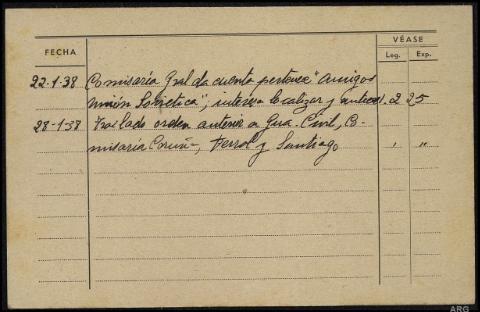 VÉASE
FECHA
Leg. Exp.
22-1-38 Comisaría Gral da cuenta pertenece "Amigos
Unión Soviética"; interesa localizar y anteced. 2 25
28-1-38 Traslado orden anterior a Gua. Civil, Co-
misaria Coruña, Ferrol y Santiago " "
ARG